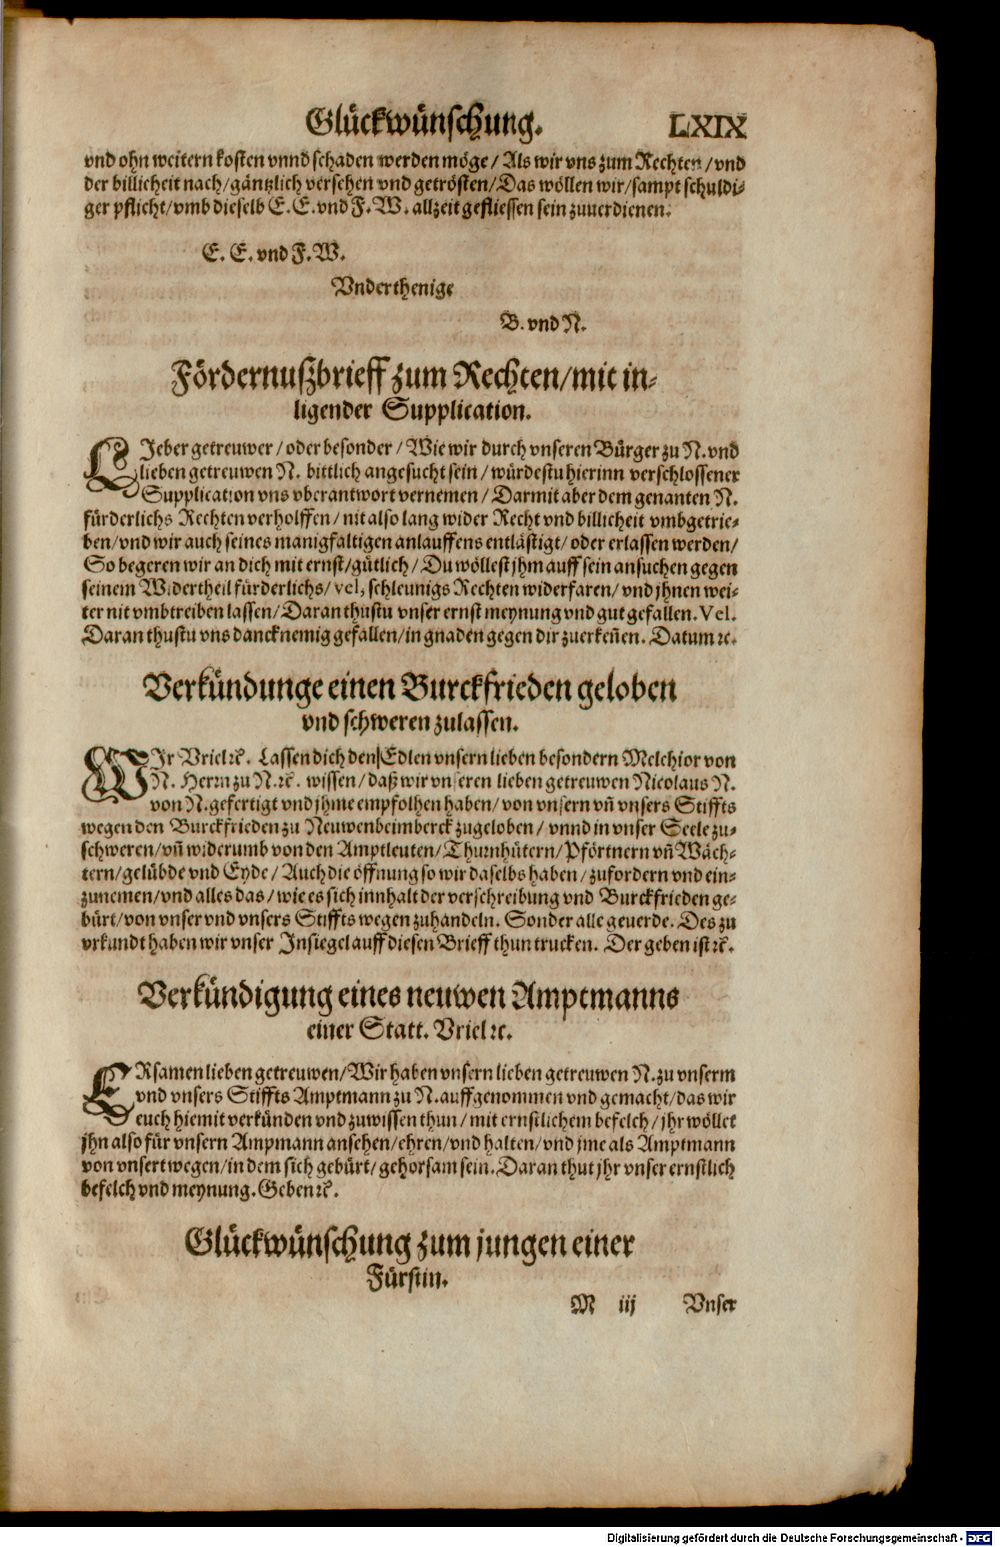 Glückwünschung. LXIX
vnd ohn weitern kosten vnnd schaden werden möge / Als wir vns zum Rechten / vnd
der billicheit nach / gäntzlich versehen vnd getrösten / Das wöllen wir / sampt schuldi-
ger pflicht / vmb dieselb E. E. vnd F. W. allzeit gefliessen sein zuuerdienen.
E. E. vnd F. W.
Vnderthenige
B. vnd N.
Fördernußbrieff zum Rechten / mit in-
ligender Supplication.
LJeber getreuwer / oder besonder / Wie wir durch vnseren Bürger zu N. vnd
lieben getreuwen N. bittlich angesucht sein / würdestu hierinn verschlossener
Supplication vns vberantwort vernemen / Darmit aber dem genanten N.
fürderlichs Rechten verholffen / nit also lang wider Recht vnd billicheit vmbgetrie-
ben / vnd wir auch seines manigfaltigen anlauffens entlästigt / oder erlassen werden /
So begeren wir an dich mit ernst / gütlich / Du wöllest jhm auff sein ansuchen gegen
seinem Widertheil fürderlichs / vel, schleunigs Rechten widerfaren / vnd jhnen wei-
ter nit vmbtreiben lassen / Daran thustu vnser ernst meynung vnd gut gefallen. Vel.
Daran thustu vns danck nemig gefallen / in gnaden gegen dir zuerkeñen. Datum ꝛc.
Verkündunge einen Burckfrieden geloben
vnd schweren zulassen.
WJr Vriel ꝛc. Lassen dich den Edlen vnsern lieben besondern Melchior von
N. Herrn zu N. ꝛc. wissen / daß wir vnseren lieben getreuwen Nicolaus N.
von N. gefertigt vnd jhme empfolhen haben / von vnsern vñ vnsers Stiffts
wegen den Burckfrieden zu Neuwenbeimberck zugeloben / vnnd in vnser Seele zu-
schweren / vñ widerumb von den Amptleuten / Thurnhütern / Pförtnern vñ Wäch-
tern / gelübde vnd Eyde / Auch die öffnung so wir daselbs haben / zufordern vnd ein-
zunemen / vnd alles das / wie es sich innhalt der verschreibung vnd Burckfrieden ge-
bürt / von vnser vnd vnsers Stiffts wegen zuhandeln. Sonder alle geuerde. Des zu
vrkundt haben wir vnser Insiegel auff diesen Brieff thun trucken. Der geben ist ꝛc.
Verkündigung eines neuwen Amptmanns
einer Statt. Vriel ꝛc.
ERsamen lieben getreuwen / Wir haben vnsern lieben getreuwen N. zu vnserm
vnd vnsers Stiffts Amptmann zu N. auffgenommen vnd gemacht / das wir
euch hiemit verkünden vnd zuwissen thun / mit ernstlichem befelch / jhr wöllet
jhn also für vnsern Ampmann ansehen / ehren / vnd halten / vnd jme als Amptmann
von vnsert wegen / in dem sich gebürt / gehorsam sein. Daran thut jhr vnser ernstlich
befelch vnd meynung. Geben ꝛc.
Glückwünschung zum jungen einer
Fürstin.
M iij Vnser
Digitalisierung gefördert durch die Deutsche Forschungsgemeinschaft - DFG